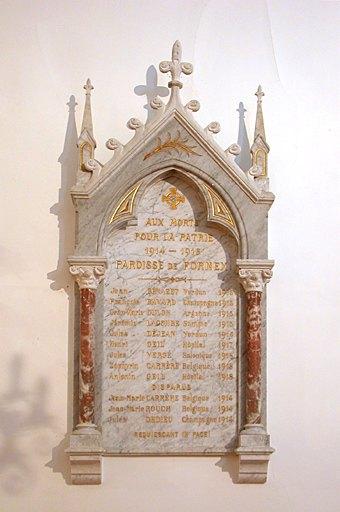 AUX MORTS
POUR LA PATRIE
1914 - 1918
PAROISSE DE FORNEX
Jean Verdun
François Champagne 1915
DULON Argonne 1915
LACOMBE Somme
DEJEAN Verdun 1916
Henri GEIL Hôpital 1917
Jules VERGÉ Salonique
CARRÈRE Belgique 1918
Antonin GEIL Hôpital 1918
DISPARUS
Jean-Marie CARRÈRE Belgique 1914
Jean-Marie ROUCH Belgique 1914
Jules Champagne
REQUIESCANT IN PACE!